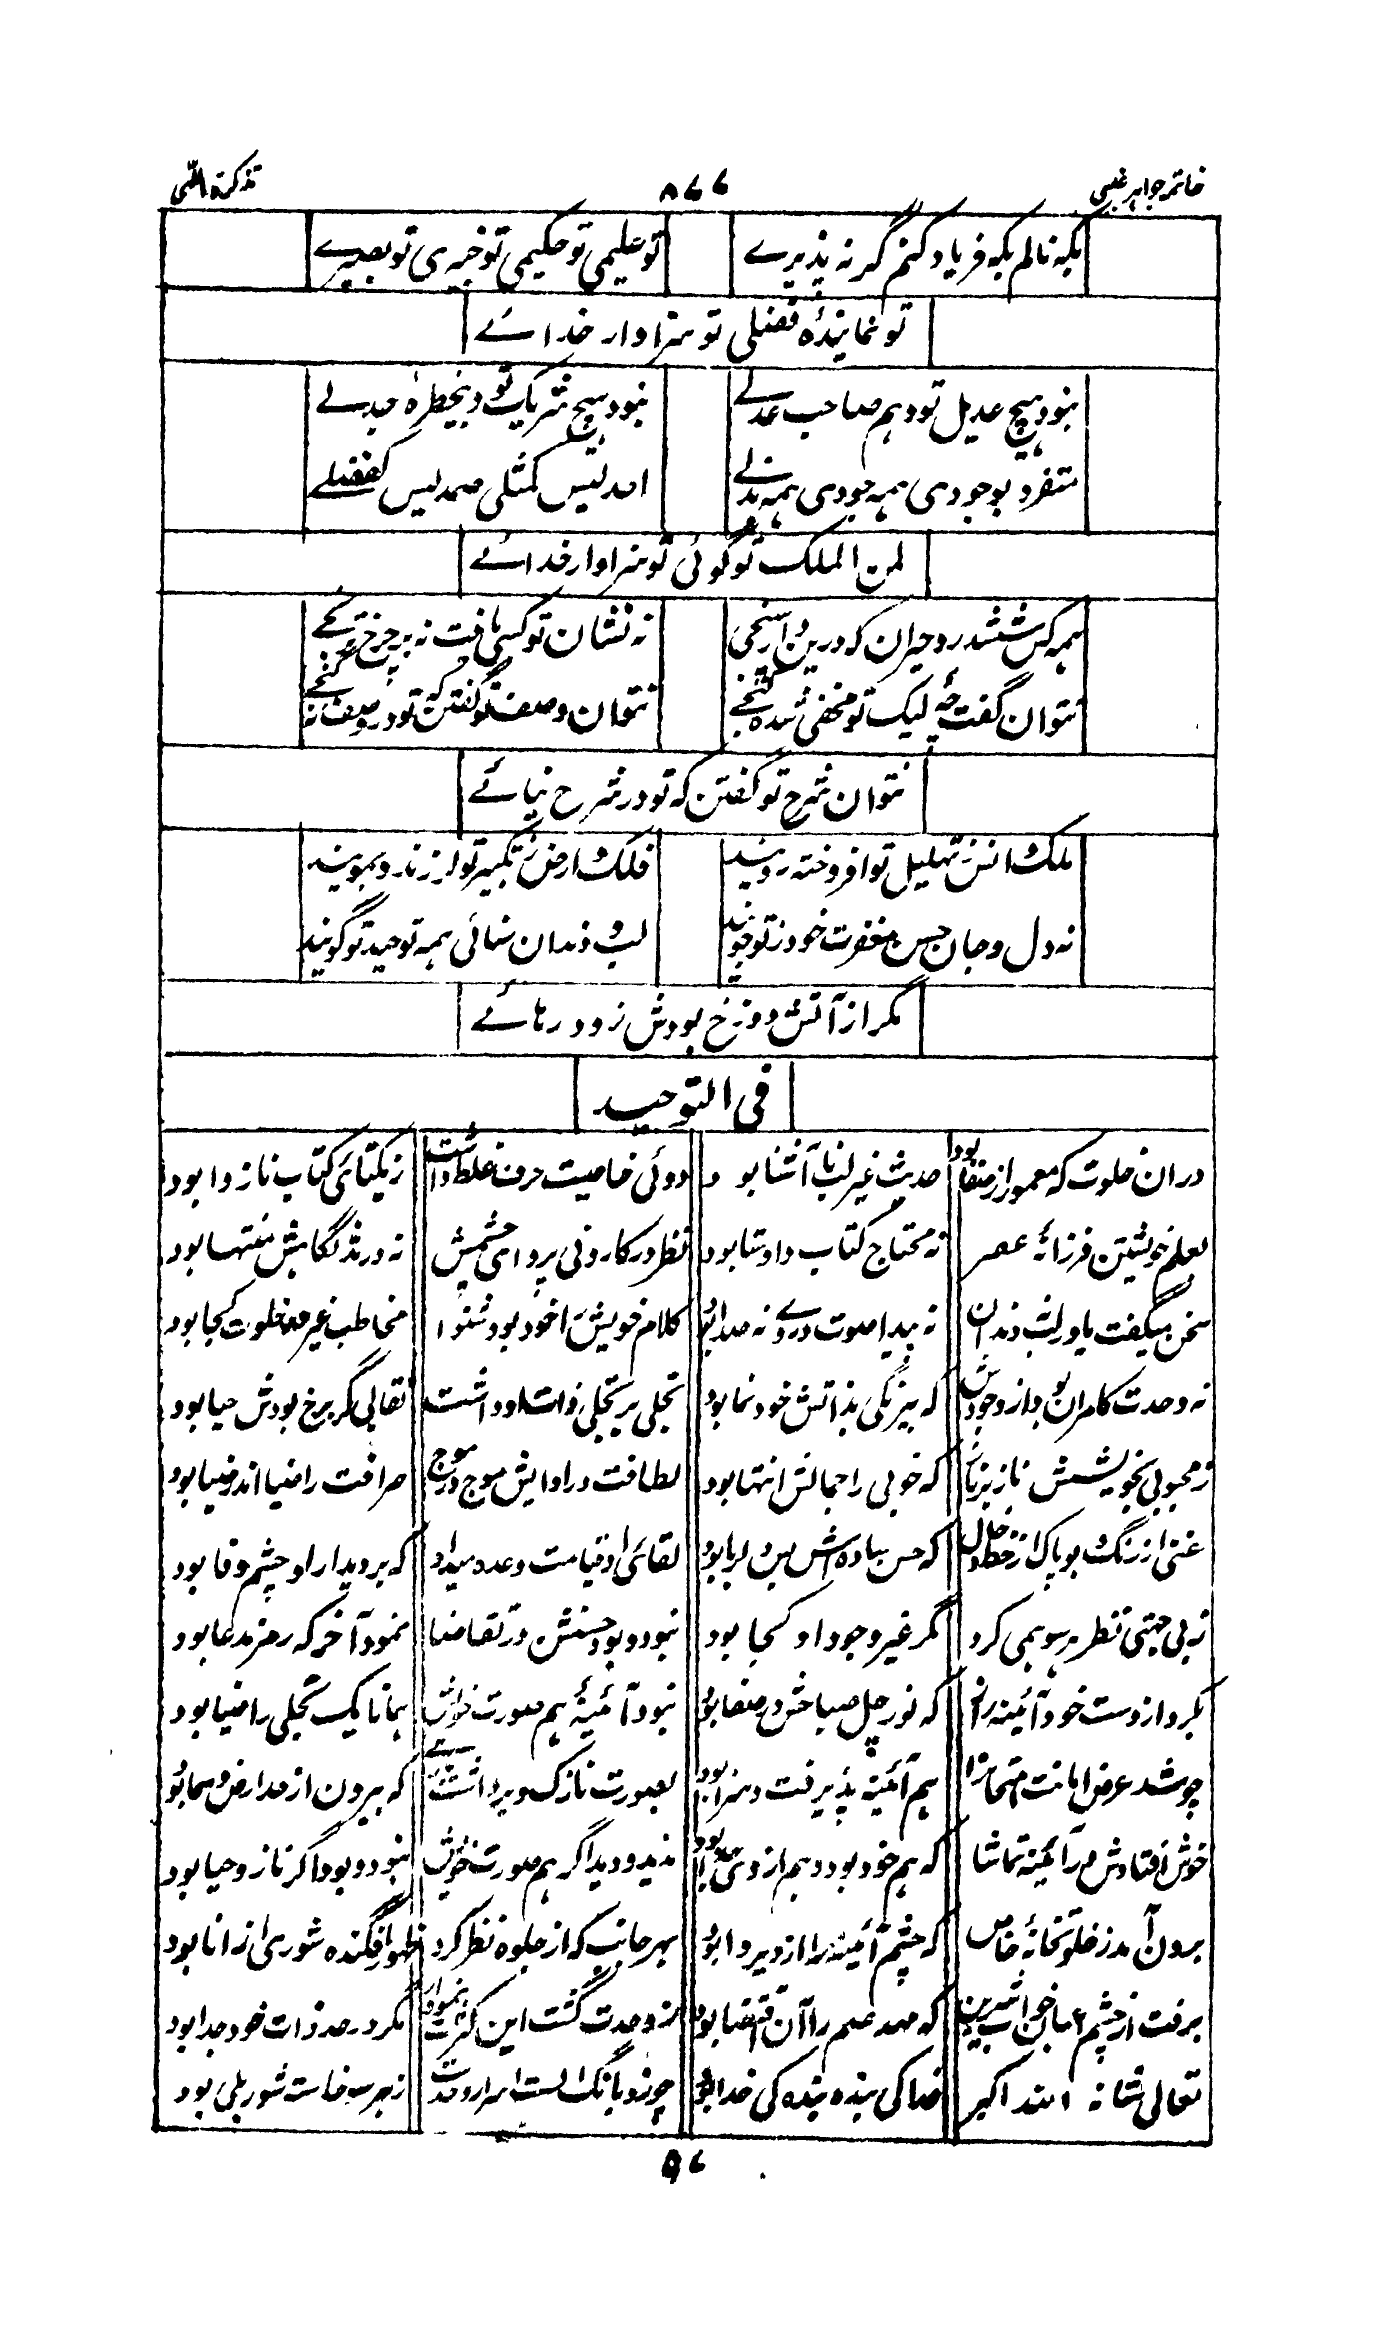 خاتمہ جواہر غیبی ۸۷۷ تذکرۃ اللّٰہی
بکہ نالم بکہ فریاد کنم گر نہ پذیرے تو علیمی تو حکیمی تو خبیری تو بصیرے
تو نمایندۂ فضلی تو سزاوار خدائے
نبود ہیچ عدیل تو و ہم صاحب عدلے نبود ہیچ شریک تو
متفرد بوجودی ہمہ جودی ہمہ بذلے احد لیس کمثلی صمد لیس کفضلے
لمن الملک تو گوئی تو سزاوار خدائے
ہمہ کس ششدر و حیران کہ درین نہ نشان تو کسی یافت نہ بر چرخ
نتوان گفت چۂ لیک تو مخفی شدہ گنجے نتوان وصف تو گفتن کہ تو در وصف نہ گنجے
نتوان شرح تو گفتن کہ تو در شرح نیائے
ملک و انس ز تہلیل تو افروختہ رویند فلک و ارض ز تکبیر تو لرزند و بمویند
نہ دل و جان حسن مغفرت خود ز تو جویند لب و دندان سنائی ہمہ توحید تو گویند
مگر از آتش دوزخ بودش زود رہائے
فی التوحید
دران خلوت کہ معمور از صفا بود حدیث غیر لب نا آشنا بود دوئی خاصیت حرف غلط داشت ز یکتائی کتاب ناز وا بود
بعلم خویشتن فرزانۂ عصر نہ محتاج کتاب و اوستا بود نظر در کار و نی پروای چشمش نہ در مد نگاہش منتہا بود
سخن میگفت یا و لب و دندان نہ پیدا صوت در وے نہ صدا بود کلام خویش را خود بود شنوا مخاطب غیر در خلوت کجا بود
نہ وحدت کامران بود از وجودش کہ بیرنگی بذاتش خود نما بود تجلی بر تجلی ذات او داشت نقابی گر برخ بودش حیا بود
ز محبوبی بخویشش ناز بر ناز کہ خوبی را جمالش انتہا بود لطافت در ادایش موج در موج صرافت را ضیا اندر ضیا بود
غنی از رنگ و بو پاک از خط و خال کہ حسن سادہ اش بس دلربا بود لقائی او قیامت وعدہ میداد کہ بر دیدار او چشم وفا بود
ز بی جہتی نظر ہر سو ہمی کرد مگر غیر وجود او کجا بود نبود و بود حسنش در تقاضا نمود آخر کہ رمز مدعا بود
بکرد از دست خود آئینہ را کہ نور چل صباحش در صفا بود نبود آئینۂ ہم صورت خویش ہمانا یک تجلی را ضیا بود
چو شد عرض امانت ہم آئینہ پذیرفت و سزا بود بصورت نازک و کہ بیرون از مد ارض و سما بود
خوش افتادش در آئینہ تماشا کہ ہم خود بود و ہم از وی جدا بود ندید و دید اگر ہم صورت خویش نبود و بود اگر ناز و حیا بود
برون آمد ز خلوتخانۂ خاص کہ چشم آئینہ را از دیر وا بود بہر جانب کہ از جلوہ نظر کرد ظہور افگندہ شوری از انا بود
برفت از چشم اعیان خواب شیرین کہ مہد علم را آن اقتضا بود ز وحدت گشت این کثرت نمودار مگر در حد ذات خود جدا بود
تعالی شانہ اللہ اکبر خدا کی بندہ بندہ کی خدا بود چو زد بانگ الست اسرار وحدت ز ہر سو خاست شور بلی بود
۹۷